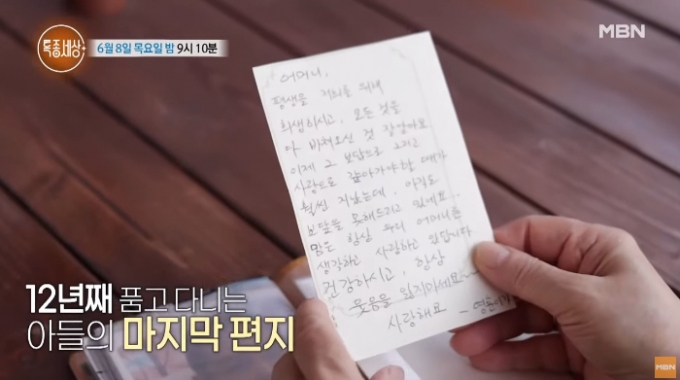 특종세상
6월 8일 목요일 밤 9시 10분
MBN
어머니,
평생을 저희를 위해
희생하시고, 모든 것을
다 바쳐오신 것 잘 알아요
이제 그 보답으로 그리고
사랑으로 갚아가야할 때가
훨씬 지났는데, 아직도
보답을 못해드리고 있네요..
맘은 항상 우리 어머니를
생각하고 사랑하고 있답니다
건강하시고, 항상
웃음을 잃지마세요
사랑해요
12년째 품고 다니는
아들의 마지막 편지
MBN